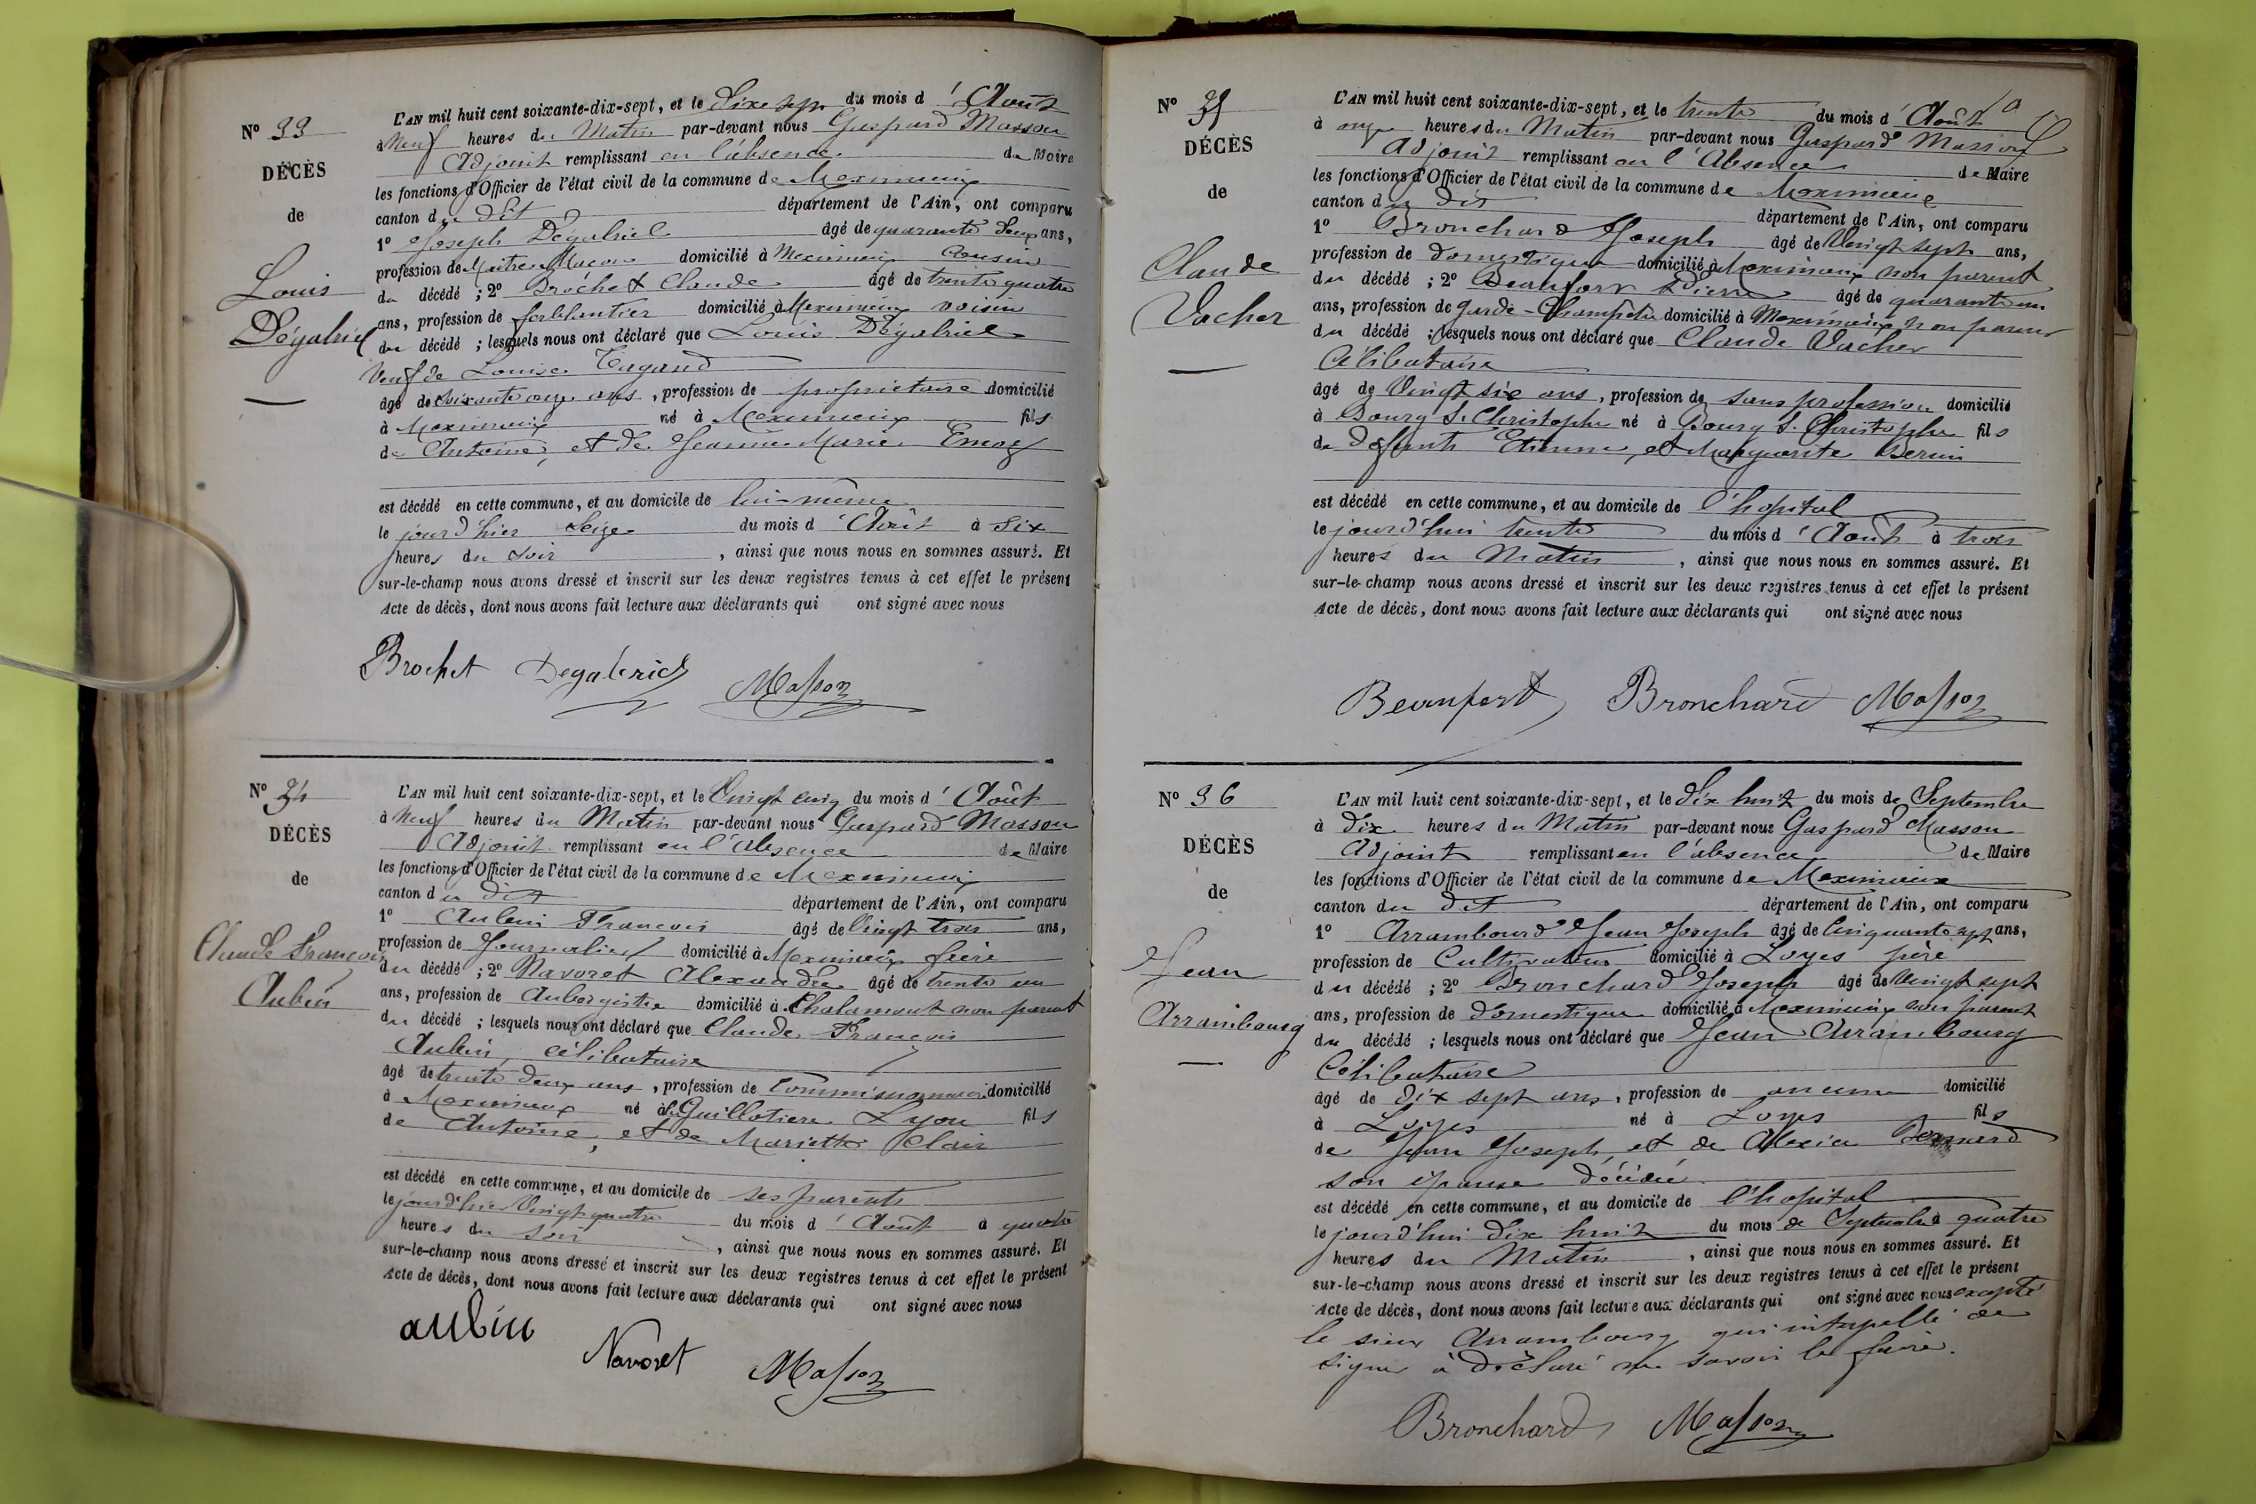 N° 33
DÉCÈS
de
Louis
Dégabriel
L'AN mil huit cent soixante-dix-sept, et le Dix sept du mois d' Août
à Neuf heures du Matin par-devant nous Gaspard Masson
Adjoint remplissant en l'absence du Maire
les fonctions d'Officier de l'état civil de la commune de Meximieux
canton du dit département de l'Ain, ont comparu
1° Joseph Dégabriel âgé de quarante deux ans,
profession de Maître Maçon domicilié à Meximieux Cousin
du décédé ; 2° Brochet Claude âgé de trente quatre
ans, profession de ferblantier domicilié à Meximieux voisin
du décédé ; lesquels nous ont déclaré que Louis Dégabriel
Veuf de Louise
âgé de soixante onze ans, profession de propriétaire domicilié
à Meximieux né à Meximieux fils
de Antoine, et de Jeanne Marie
est décédé en cette commune, et au domicile de lui-même
le jour d'hier Seize du mois d' Août à Six
heures du soir, ainsi que nous nous en sommes assuré. Et
sur-le-champ nous avons dressé et inscrit sur les deux registres tenus à cet effet le présent
Acte de décès, dont nous avons fait lecture aux déclarants qui ont signé avec nous
Brochet Degabriel Masson
N° 34
DÉCÈS
de
Claude François
Aubin
L'AN mil huit cent soixante-dix-sept, et le Vingt cinq du mois d' Août
à Neuf heures du Matin par-devant nous Gaspard Masson
Adjoint remplissant en l'absence de Maire
les fonctions d'Officier de l'état civil de la commune de Meximieux
canton du dit département de l'Ain, ont comparu
1° Aubin François âgé de Vingt trois ans,
profession de Journalier domicilié à Meximieux frère
du décédé ; 2° Navoret Alexandre âgé de trente un
ans, profession de Aubergiste domicilié à Chalamont non parent
du décédé ; lesquels nous ont déclaré que Claude François
Aubin, célibataire
âgé de trente deux ans, profession de Commissionnaire domicilié
à Meximieux né à la Guillotière Lyon fils
de Antoine, et de Mariette Clair
est décédé en cette commune, et au domicile de ses parents
le jour d'hier Vingt quatre du mois d' Août à quatre
heures du soir, ainsi que nous nous en sommes assuré. Et
sur-le-champ nous avons dressé et inscrit sur les deux registres tenus à cet effet le présent
Acte de décès, dont nous avons fait lecture aux déclarants qui ont signé avec nous
aubin
Navoret Masson
N° 35
DÉCÈS
de
Claude
Vacher
L'AN mil huit cent soixante-dix-sept, et le trente du mois d' Août
à onze heures du Matin par-devant nous Gaspard Masson
Adjoint remplissant en l'Absence de Maire
les fonctions d'Officier de l'état civil de la commune de Meximieux
canton du dit département de l'Ain, ont comparu
1° Bronchard Joseph âgé de Vingt sept ans,
profession de domestique domicilié à Meximieux non parent
du décédé ; 2° Beaufort Pierre âgé de quarante un
ans, profession de Garde-Champêtre domicilié à Meximieux non parent
du décédé ; lesquels nous ont déclaré que Claude Vacher
Célibataire
âgé de Vingt six ans, profession de sans profession domicilié
à Bourg St Christophe né à Bourg St Christophe fils
de défunts Etienne, et Marguerite
est décédé en cette commune, et au domicile de l'hopital
le jourd'hui trente du mois d' Août à trois
heures du Matin, ainsi que nous nous en sommes assuré. Et
sur-le-champ nous avons dressé et inscrit sur les deux registres tenus à cet effet le présent
Acte de décès, dont nous avons fait lecture aux déclarants qui ont signé avec nous
Beaufort Bronchard Masson
N° 36
DÉCÈS
de
Jean
Arrambourg
L'AN mil huit cent soixante-dix-sept, et le Dix huit du mois de Septembre
à Dix heures du Matin par-devant nous Gaspard Masson
Adjoint remplissant en l'absence de Maire
les fonctions d'Officier de l'état civil de la commune de Meximieux
canton du dit département de l'Ain, ont comparu
1° Arrambourg Jean Joseph âgé de Cinquante sept ans,
profession de Cultivateur domicilié à Loyes père
du décédé ; 2° Bronchard Joseph âgé de Vingt sept
ans, profession de domestique domicilié à Meximieux non parent
du décédé ; lesquels nous ont déclaré que Jean Arrambourg
Célibataire
âgé de dix sept ans, profession de aucune domicilié
à Loyes né à Loyes fils
de Jean Joseph, et de Alexie Bernard
son épouse décédée
est décédé en cette commune, et au domicile de l'hopital
le jourd'hui Dix huit du mois de Septembre à quatre
heures du Matin, ainsi que nous nous en sommes assuré. Et
sur-le-champ nous avons dressé et inscrit sur les deux registres tenus à cet effet le présent
Acte de décès, dont nous avons fait lecture aux déclarants qui ont signé avec nous excepté
le sieur Arrambourg qui interpellé de
signer à déclaré ne savoir le faire.
Bronchard Masson